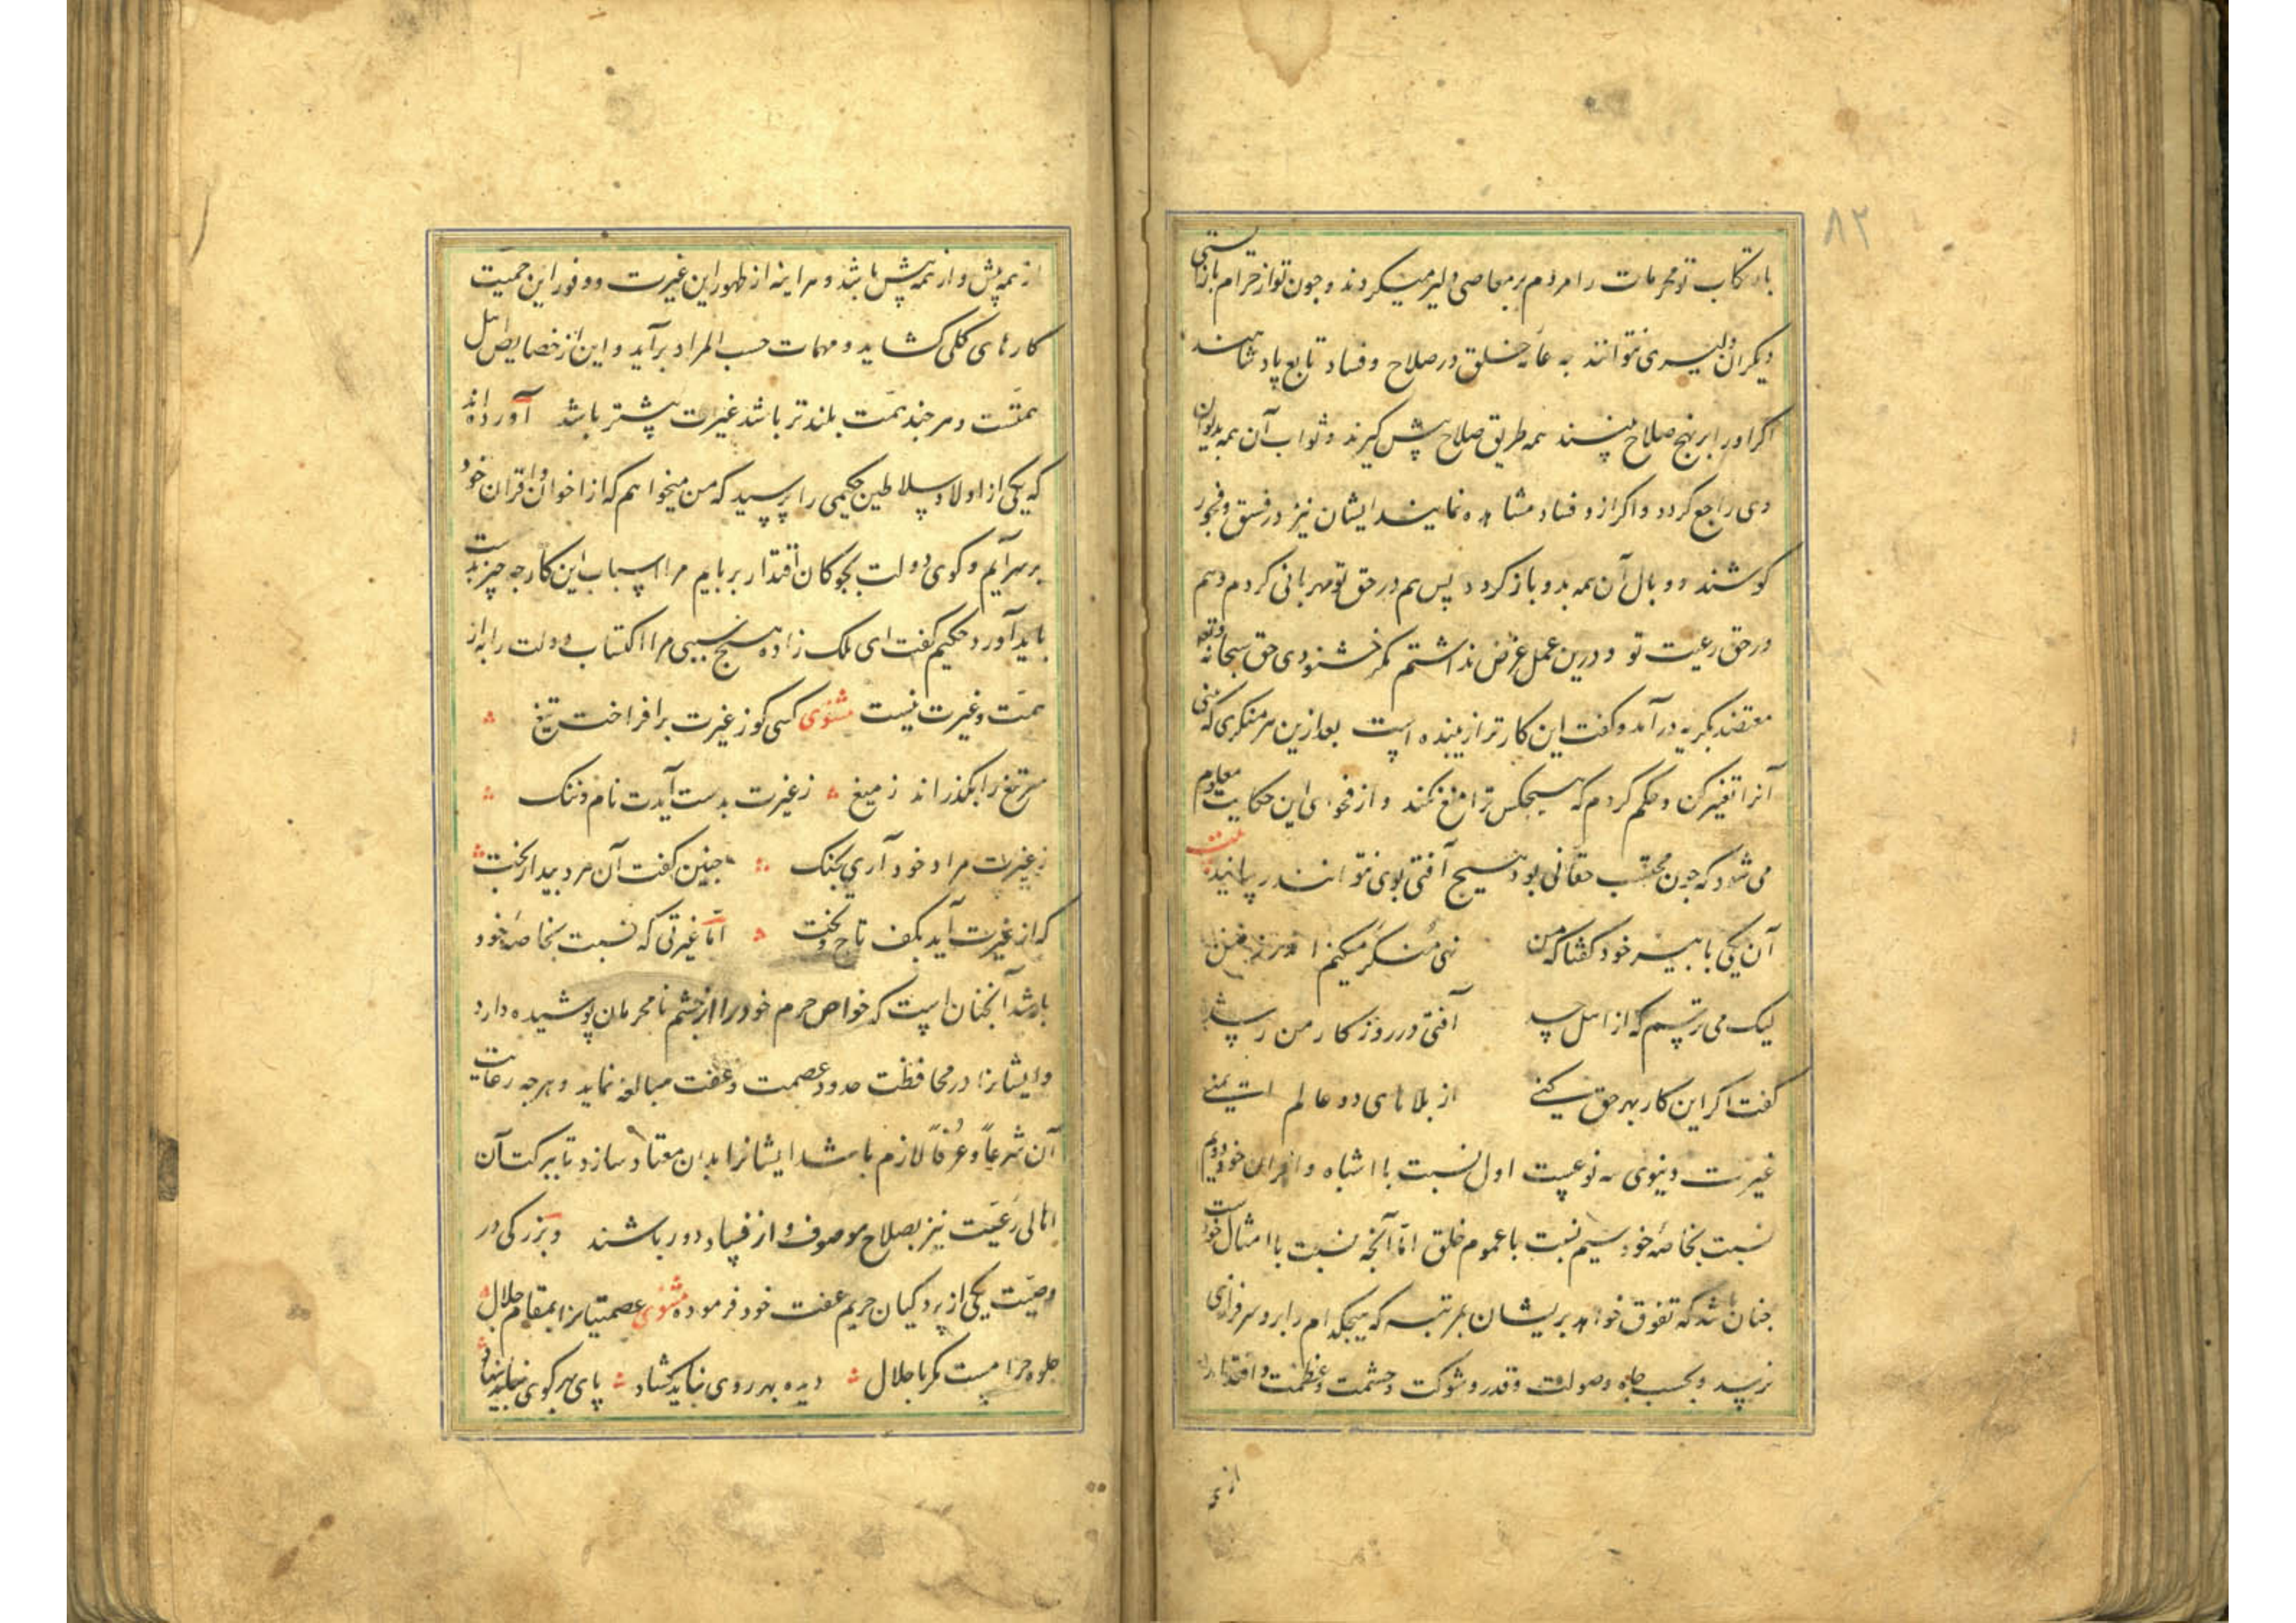 ۸۲
بارتکاب تو محرمات را مردم بر معاصی دلیر میکردند و چون تو از حرام بازایستی
دیکران دلیری نتوانند به عامه خلق در صلاح و فساد تابع پادشاهند
اکر او را بر نهج صلاح بینند همه طریق صلاح پیش کیرند و ثواب آن همه بدیوان
وی راجع کردد و اکر ازو فساد مشاهده نمایند ایشان نیز در فسق و فجور
کوشند و وبال آن همه بدو باز کردد پس هم در حق تو مهربانی کردم و هم
در حق رعیت تو و درین عمل غرض نداشتم مکر خشنودی حق سبحانه وتعه
معتضد بکریه درآمد و کفت این کار ترا زیبنده است بعد ازین هر منکری که بینی
آنرا تغییر کن و حکم کردم که هیچکس ترا منع نکند و از فحوای این حکایت معلوم
می شود که چون محتسب حقانی بود هیچ آفتی بوی نتوانند رسانید بیت
آن یکی با پیر خود کفتا که من نهی منکر میکنم اندر زمن
لیک می ترسم که از اهل حسد آفتی در روزکار من رسد
کفت اکر این کار بهر حق کنی از بلاهای دو عالم ایمنی
غیرت دنیوی سه نوعست اول نسبت با اشباه و اقران خود دویم
نسبت بخاصه خود سیم نسبت با عموم خلق اما آنچه نسبت با امثال خودست
چنان باشد که تفوق خواهد بریشان بمرتبه که هیچکدام را برو سرفرازی
نرسد و بحسب جاه و صولت و قدر و شوکت و حشمت و عظمت و اقتدار
از همه
از همه پیش و از همه بیش باشد و هر اینه از ظهور این غیرت و وفور این حمیت
کارهای کلی کشاید و مهمات حسب المراد برآید و این از خصایص اهل
همتست و هر چند همت بلندتر باشد غیرت بیشتر باشد آورده اند
که یکی از اولاد سلاطین حکیمی را پرسید که من میخواهم که از اخوان و اقران خود
برسر آیم و کوی دولت بچوکان اقتدار بربایم مرا اسباب این کار چه چیز بدست
باید آورد حکیم کفت ای ملک زاده هیچ سببی مر اکتساب دولت را به از
همت و غیرت نیست مثنوی کسی کو ز غیرت برافراخت تیغ
سر تیغ را بکذراند ز میغ ز غیرت بدست آیدت نام و ننک
ز غیرت مراد خود آری بچنک چنین کفت آن مرد بیدار بخت
که از غیرت آید بکف تاج و تخت اما غیرتی که نسبت بخاصه خود
باشد آنچنان است که خواص حرم خود را از چشم نامحرمان پوشیده دارد
و ایشانرا در محافظت حدود عصمت و عفت مبالغه نماید و هرچه رعایت
آن شرعا و عرفا لازم باشد ایشانرا بدان معتاد سازد تا ببرکت آن
اهالی رعیت نیز بصلاح موصوف و از فساد دور باشند و بزرکی در
وصیت یکی از پردکیان حریم عفت خود فرموده مثنوی عصمتیانرا بمقام جلال
جلوه حرامست مکر با حلال دیده بهر روی نباید کشاد پای بهر کوی نباید نهاد